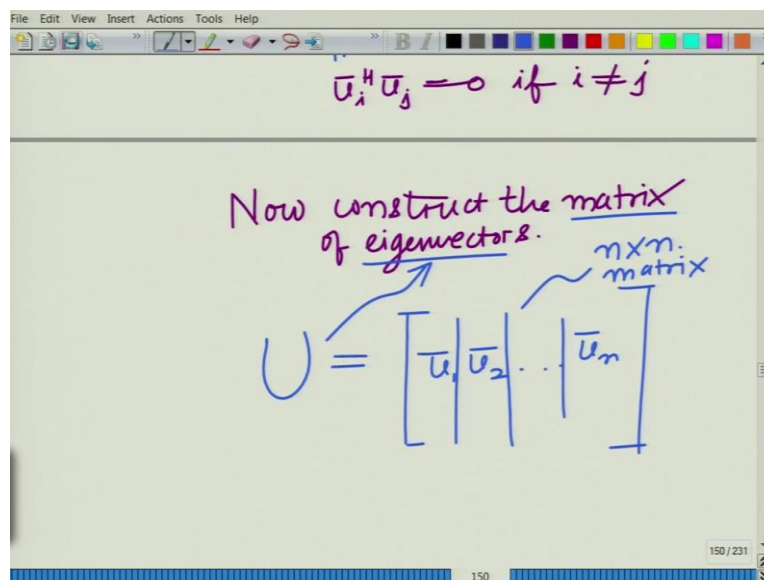 File Edit View Insert Actions Tools Help
B I
ū_i^H ū_j = 0 if i ≠ j
Now construct the matrix
of eigenvectors.
n×n.
matrix
U = [ū_1 | ū_2 | ... | ū_n]
150 / 231
150